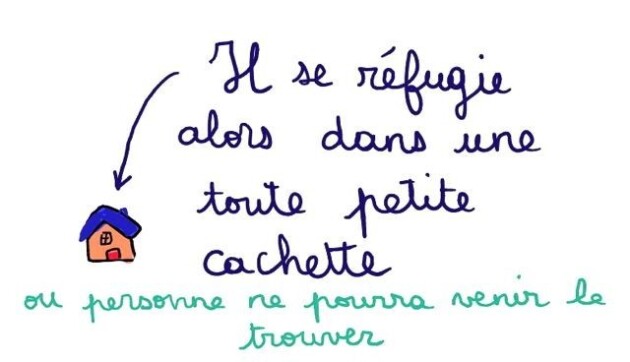 Il se réfugie
alors dans une
toute petite
cachette
ou personne ne pourra venir le
trouver